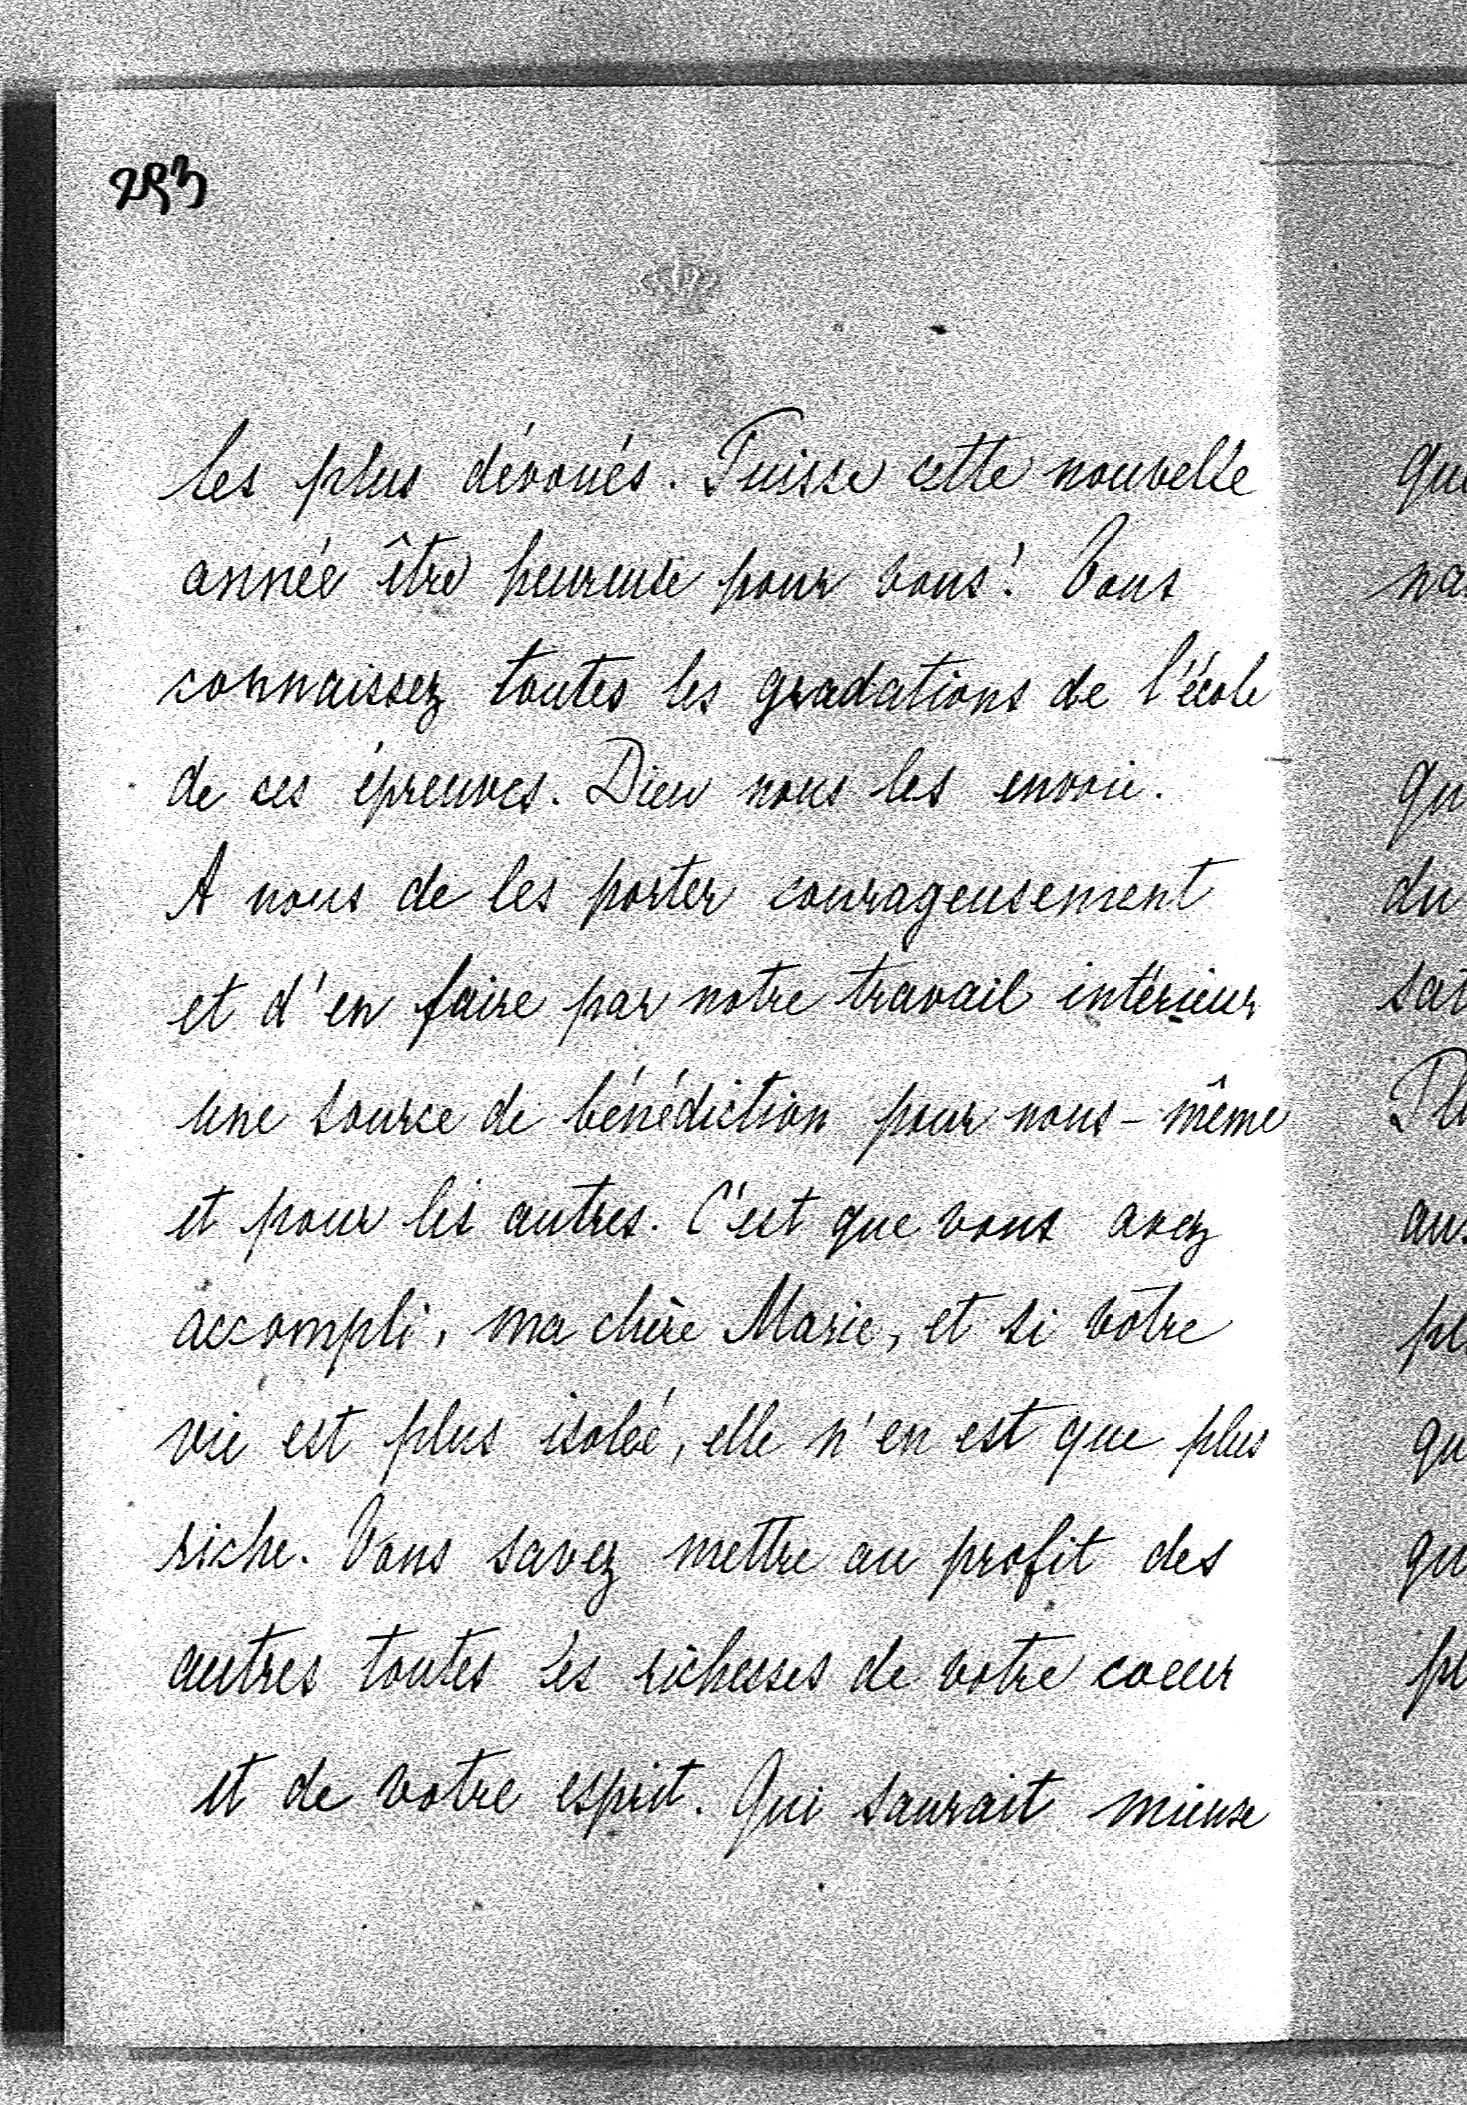 293
les plus dévoués. Puisse cette nouvelle
année être heureuse pour vous! Vous
connaissez toutes les gradations de l'école
de ces épreuves. Dieu nous les envoie.
A nous de les porter courageusement
et d'en faire par notre travail intérieur
une source de bénédiction pour nous-même
et pour les autres. C'est que vous avez
accompli, ma chère Marie, et si votre
vie est plus isolée, elle n'en est que plus
riche. Vous savez mettre au profit des
autres toutes les richesses de votre coeur
et de votre esprit. Qui saurait mieux
que
na
qu
du
sat
Plu
aus
pl
qu
qu
pl